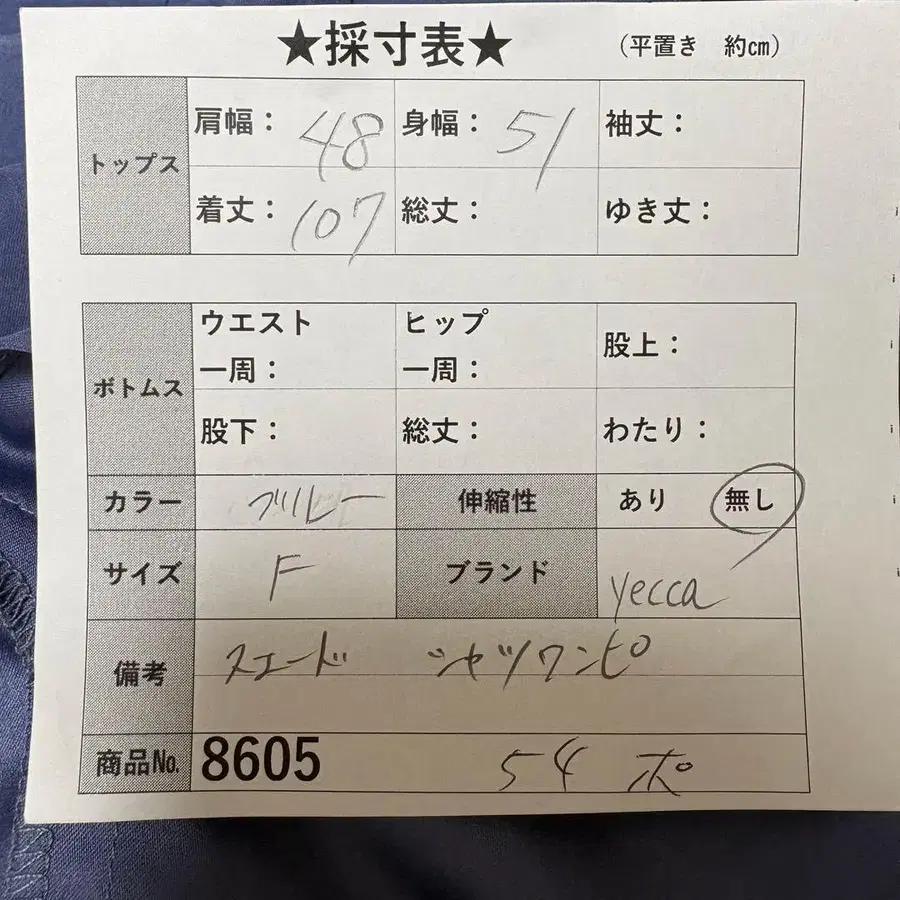 ★採寸表★ (平置き 約cm)
トップス
肩幅： 48 身幅： 51 袖丈：
着丈： 107 総丈： ゆき丈：
ボトムス
ウエスト一周： ヒップ一周： 股上：
股下： 総丈： わたり：
カラー ブルー 伸縮性 あり 無し
サイズ F ブランド yecca
備考 スエード シャツワンピ
商品No. 8605 54 ポ